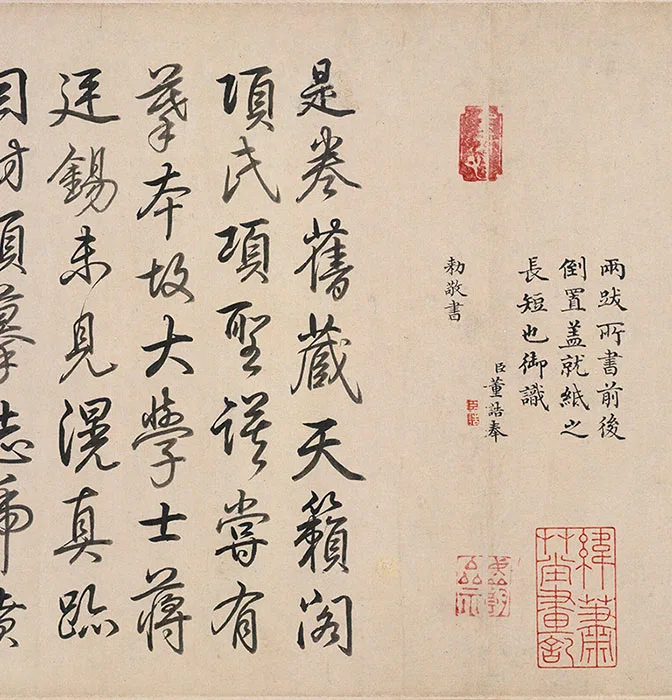 兩跋所書前後
倒置盖就紙之
長短也御識
臣董誥奉
勅敬書
緯蕭
草堂畫記
是卷舊藏天籟閣
項氏項聖謨嘗有
摹本故大學士蔣
廷錫未見滉真跡
項摹誌